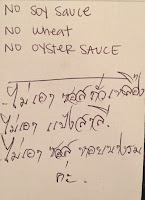 NO SOY SAUCE
NO wheat
NO OYSTER SAUCE
ไม่เอา ซอสถั่วเหลือง
ไม่เอา แป้งสาลี
ไม่เอา ซอส หอยนางรม
ค่ะ.